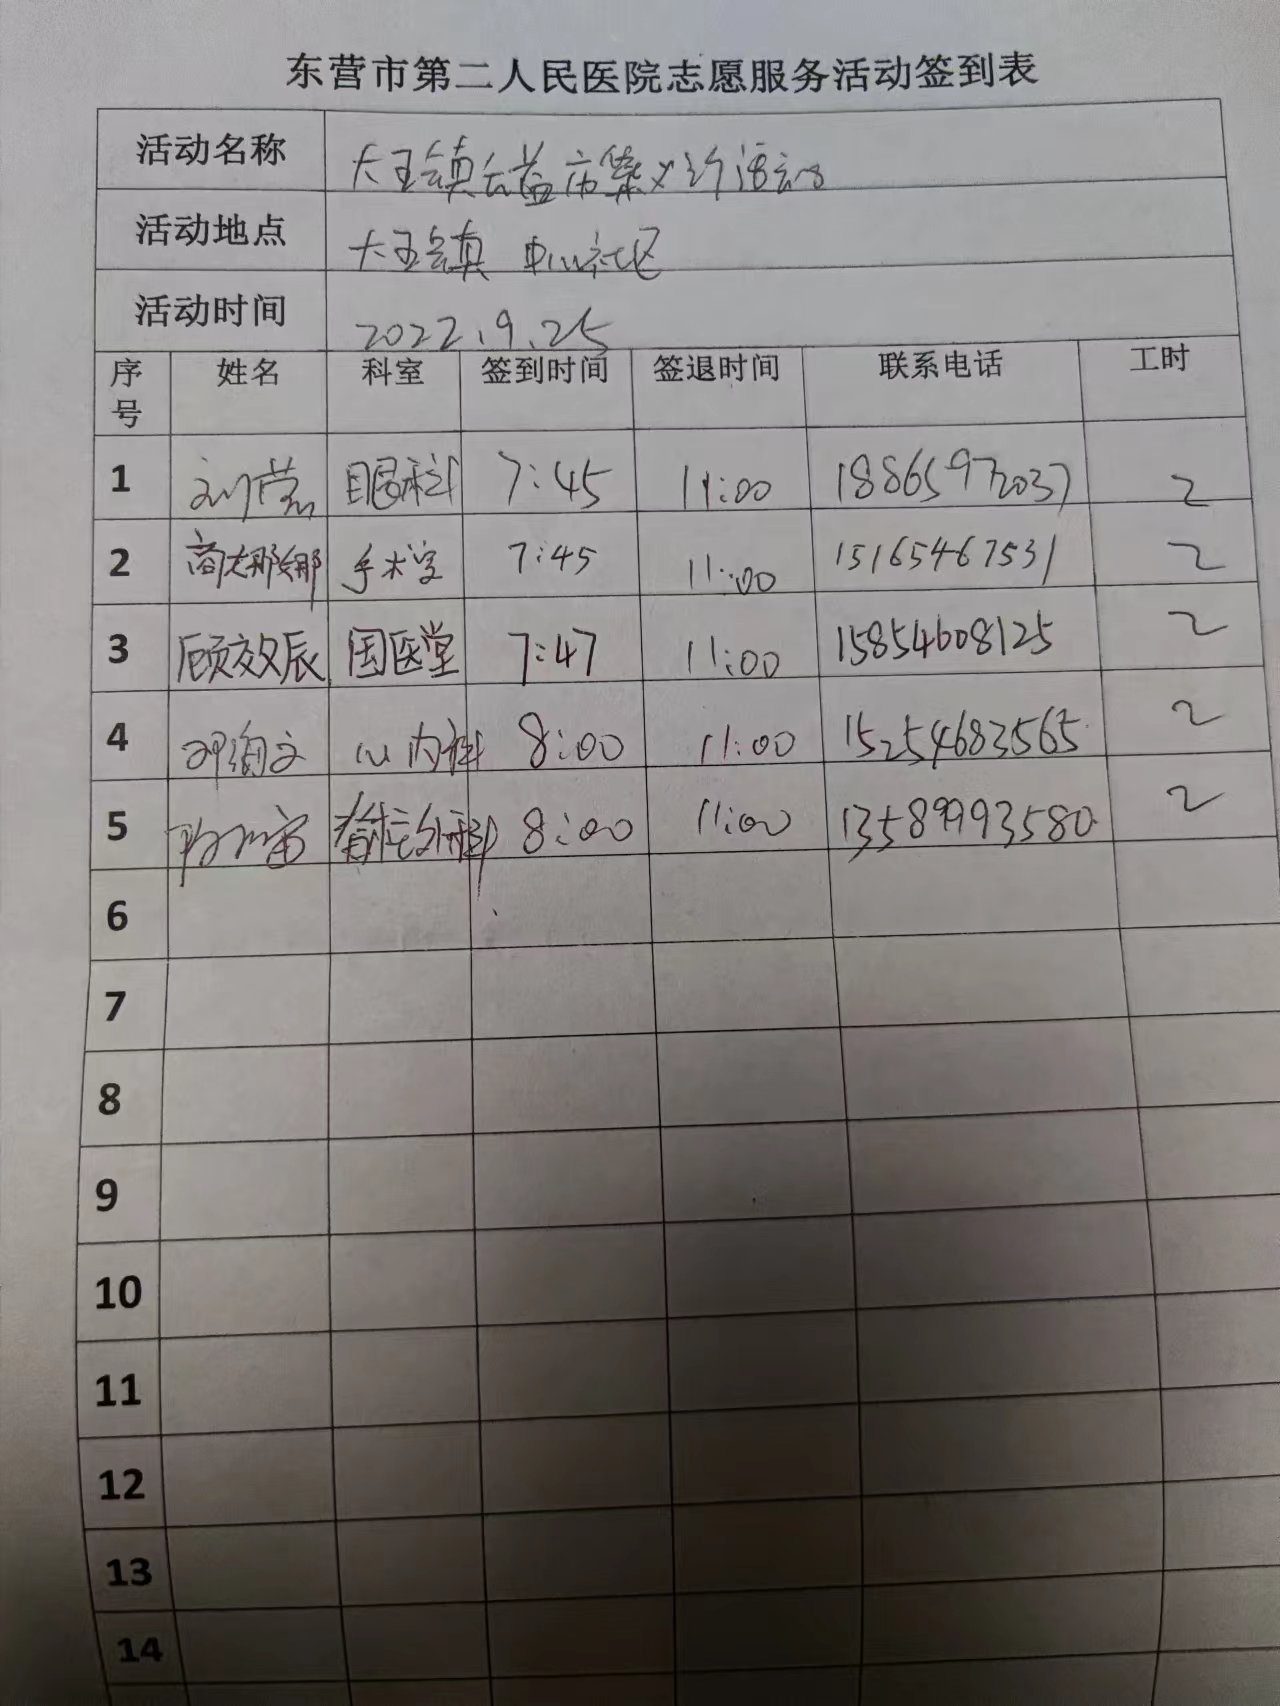 东营市第二人民医院志愿服务活动签到表
活动名称 大王镇公益市集义诊活动
活动地点 大王镇 中心社区
活动时间 2022.9.25
序号 姓名 科室 签到时间 签退时间 联系电话 工时
1 刘营 眼科 7:45 11:00 18865972037 2
2 商娜娜 手术室 7:45 11:00 15165467531 2
3 顾效辰 国医堂 7:47 11:00 15854608125 2
4 心内科 8:00 11:00 15254683565 2
5 脊柱外科 8:00 11:00 13589993580 2
6
7
8
9
10
11
12
13
14